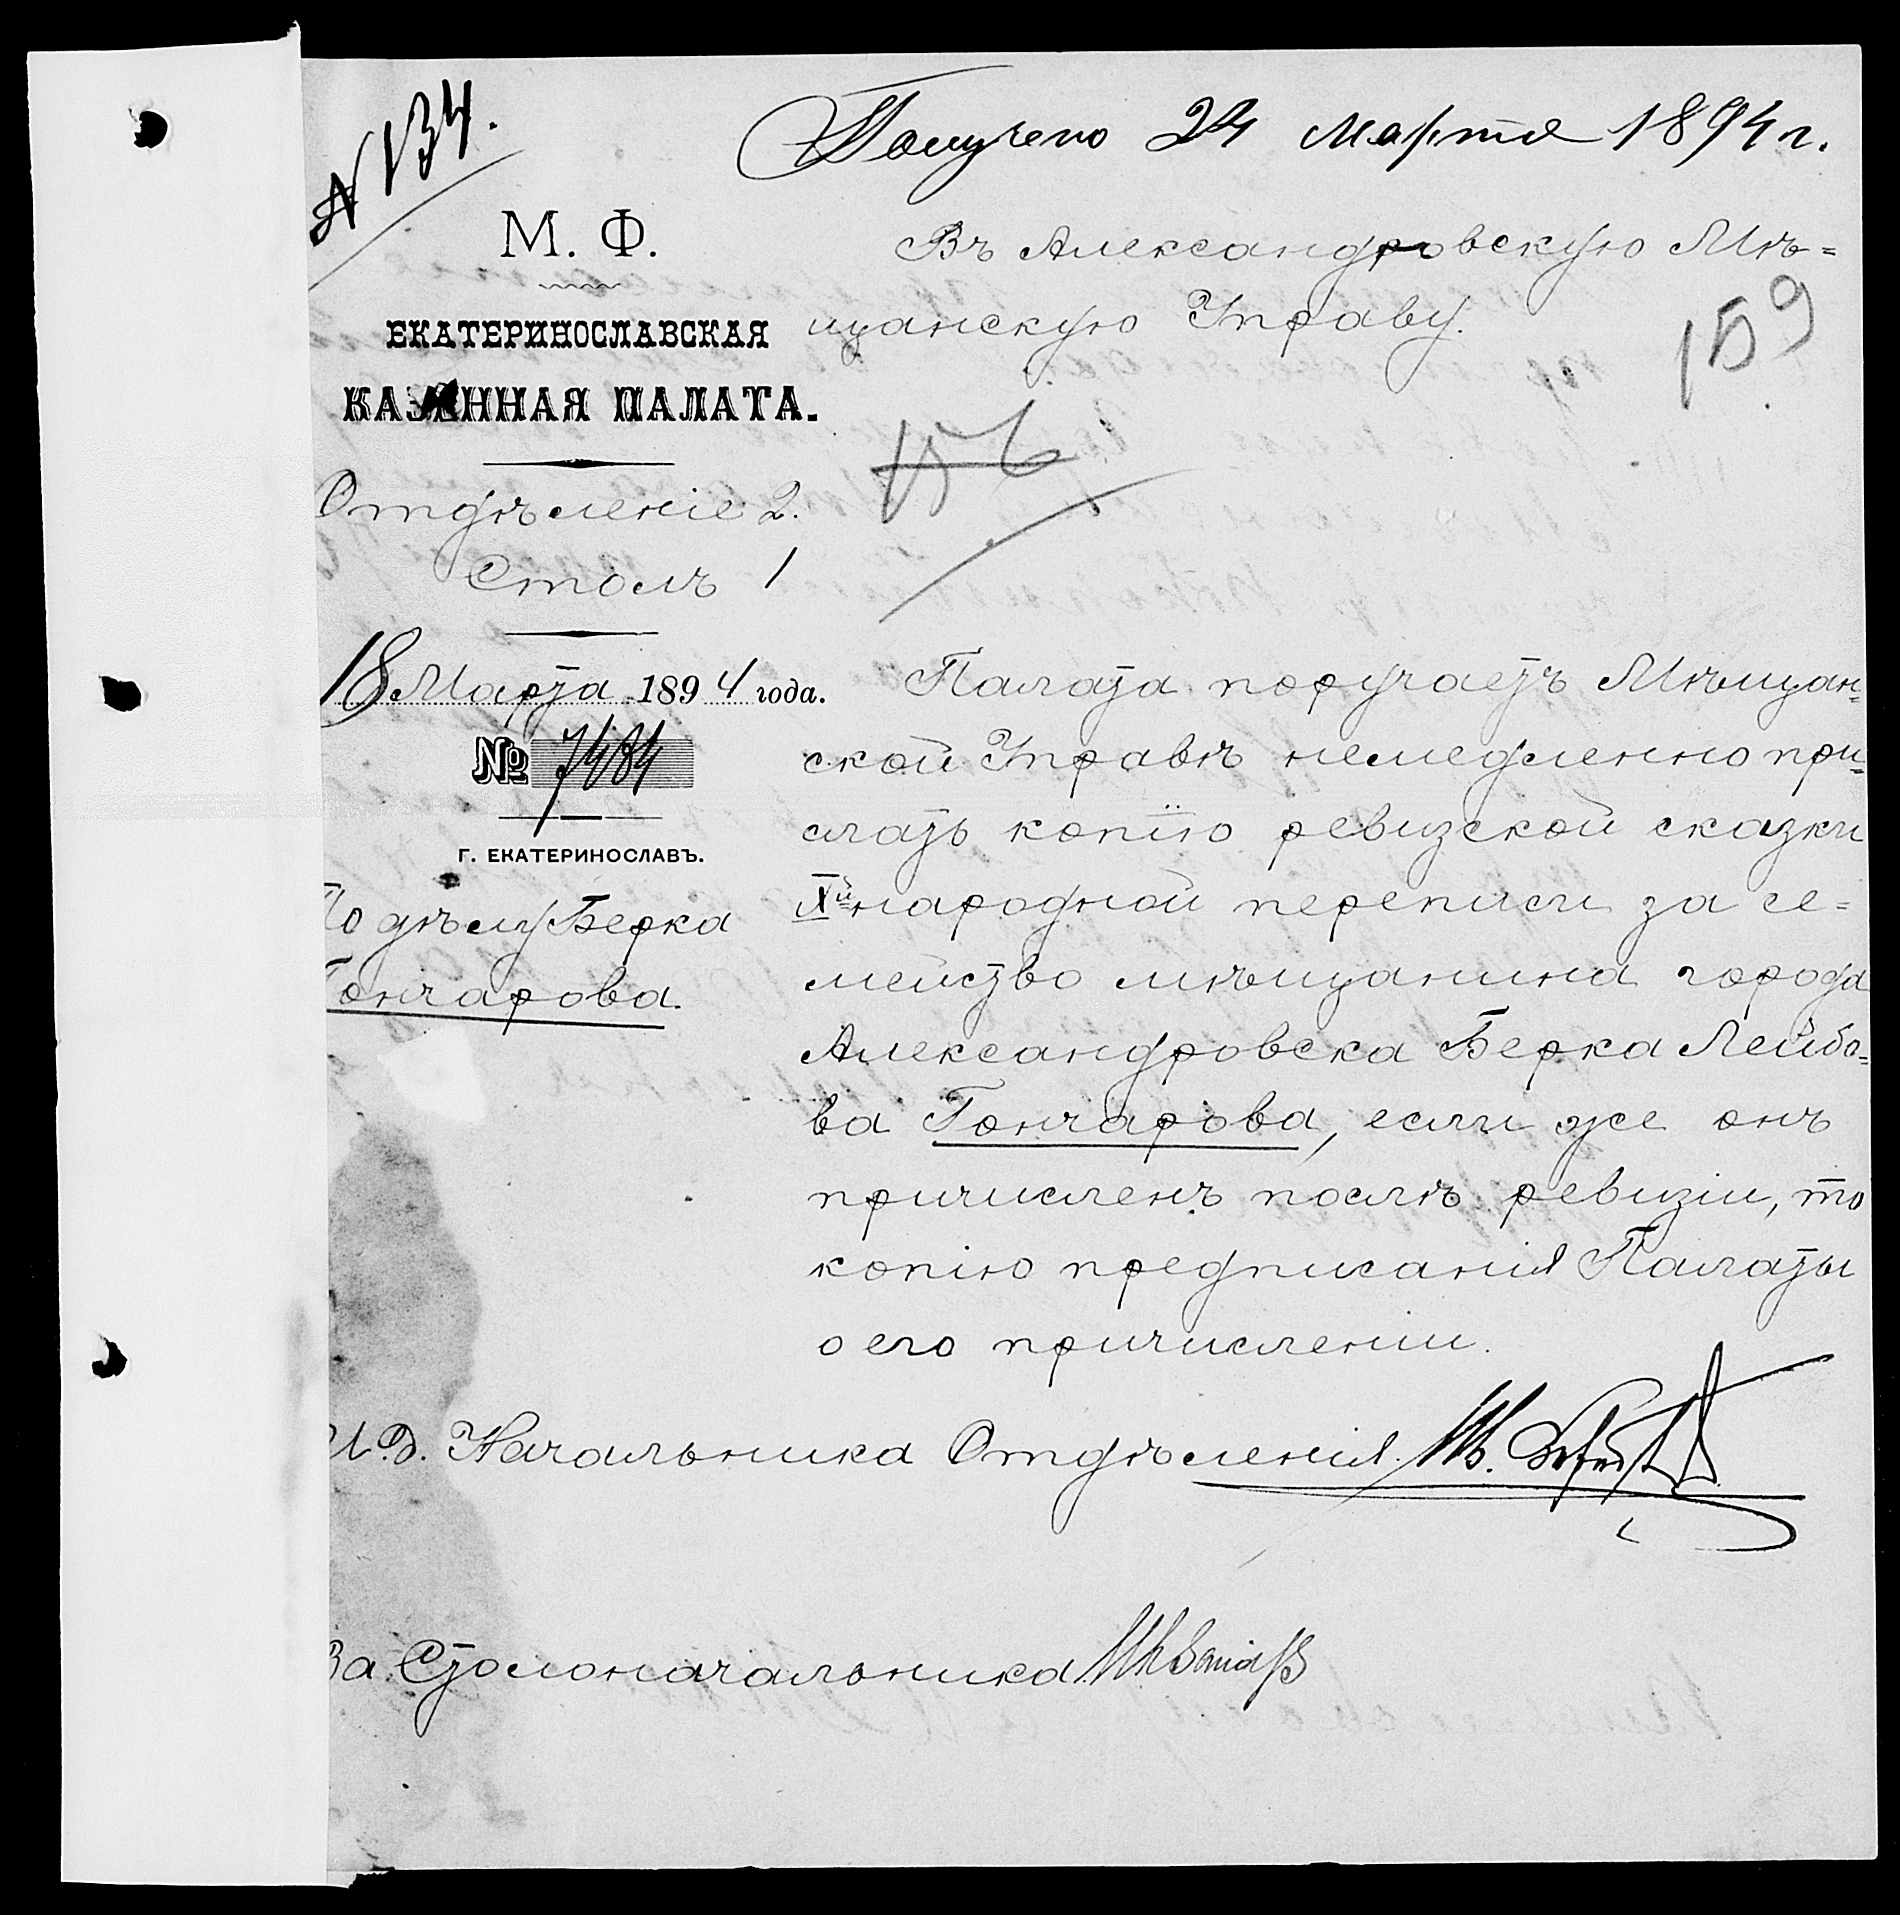 № 134.
Получено 24 Марта 1894 г.
М. Ф.
ЕКАТЕРИНОСЛАВСКАЯ
КАЗЕННАЯ ПАЛАТА.
Отдѣленіе 2.
Столъ 1
18 Марта 1894 года.
№ 7484
Г. ЕКАТЕРИНОСЛАВЪ.
По дѣлу Берка
Гончарова.
Въ Александровскую Мѣ=
щанскую Управу.
159
156
Палата поручаетъ Мѣщан=
ской Управѣ немедленно при=
слать копію ревизской сказки
Xй народной переписи за се=
мейство мѣщанина города
Александровска Берка Лейбо=
ва Гончарова, если же онъ
причисленъ послѣ ревизіи, то
копію предписанія Палаты
о его причисленіи.
И.Д. Начальника Отдѣленія
За Столоначальника